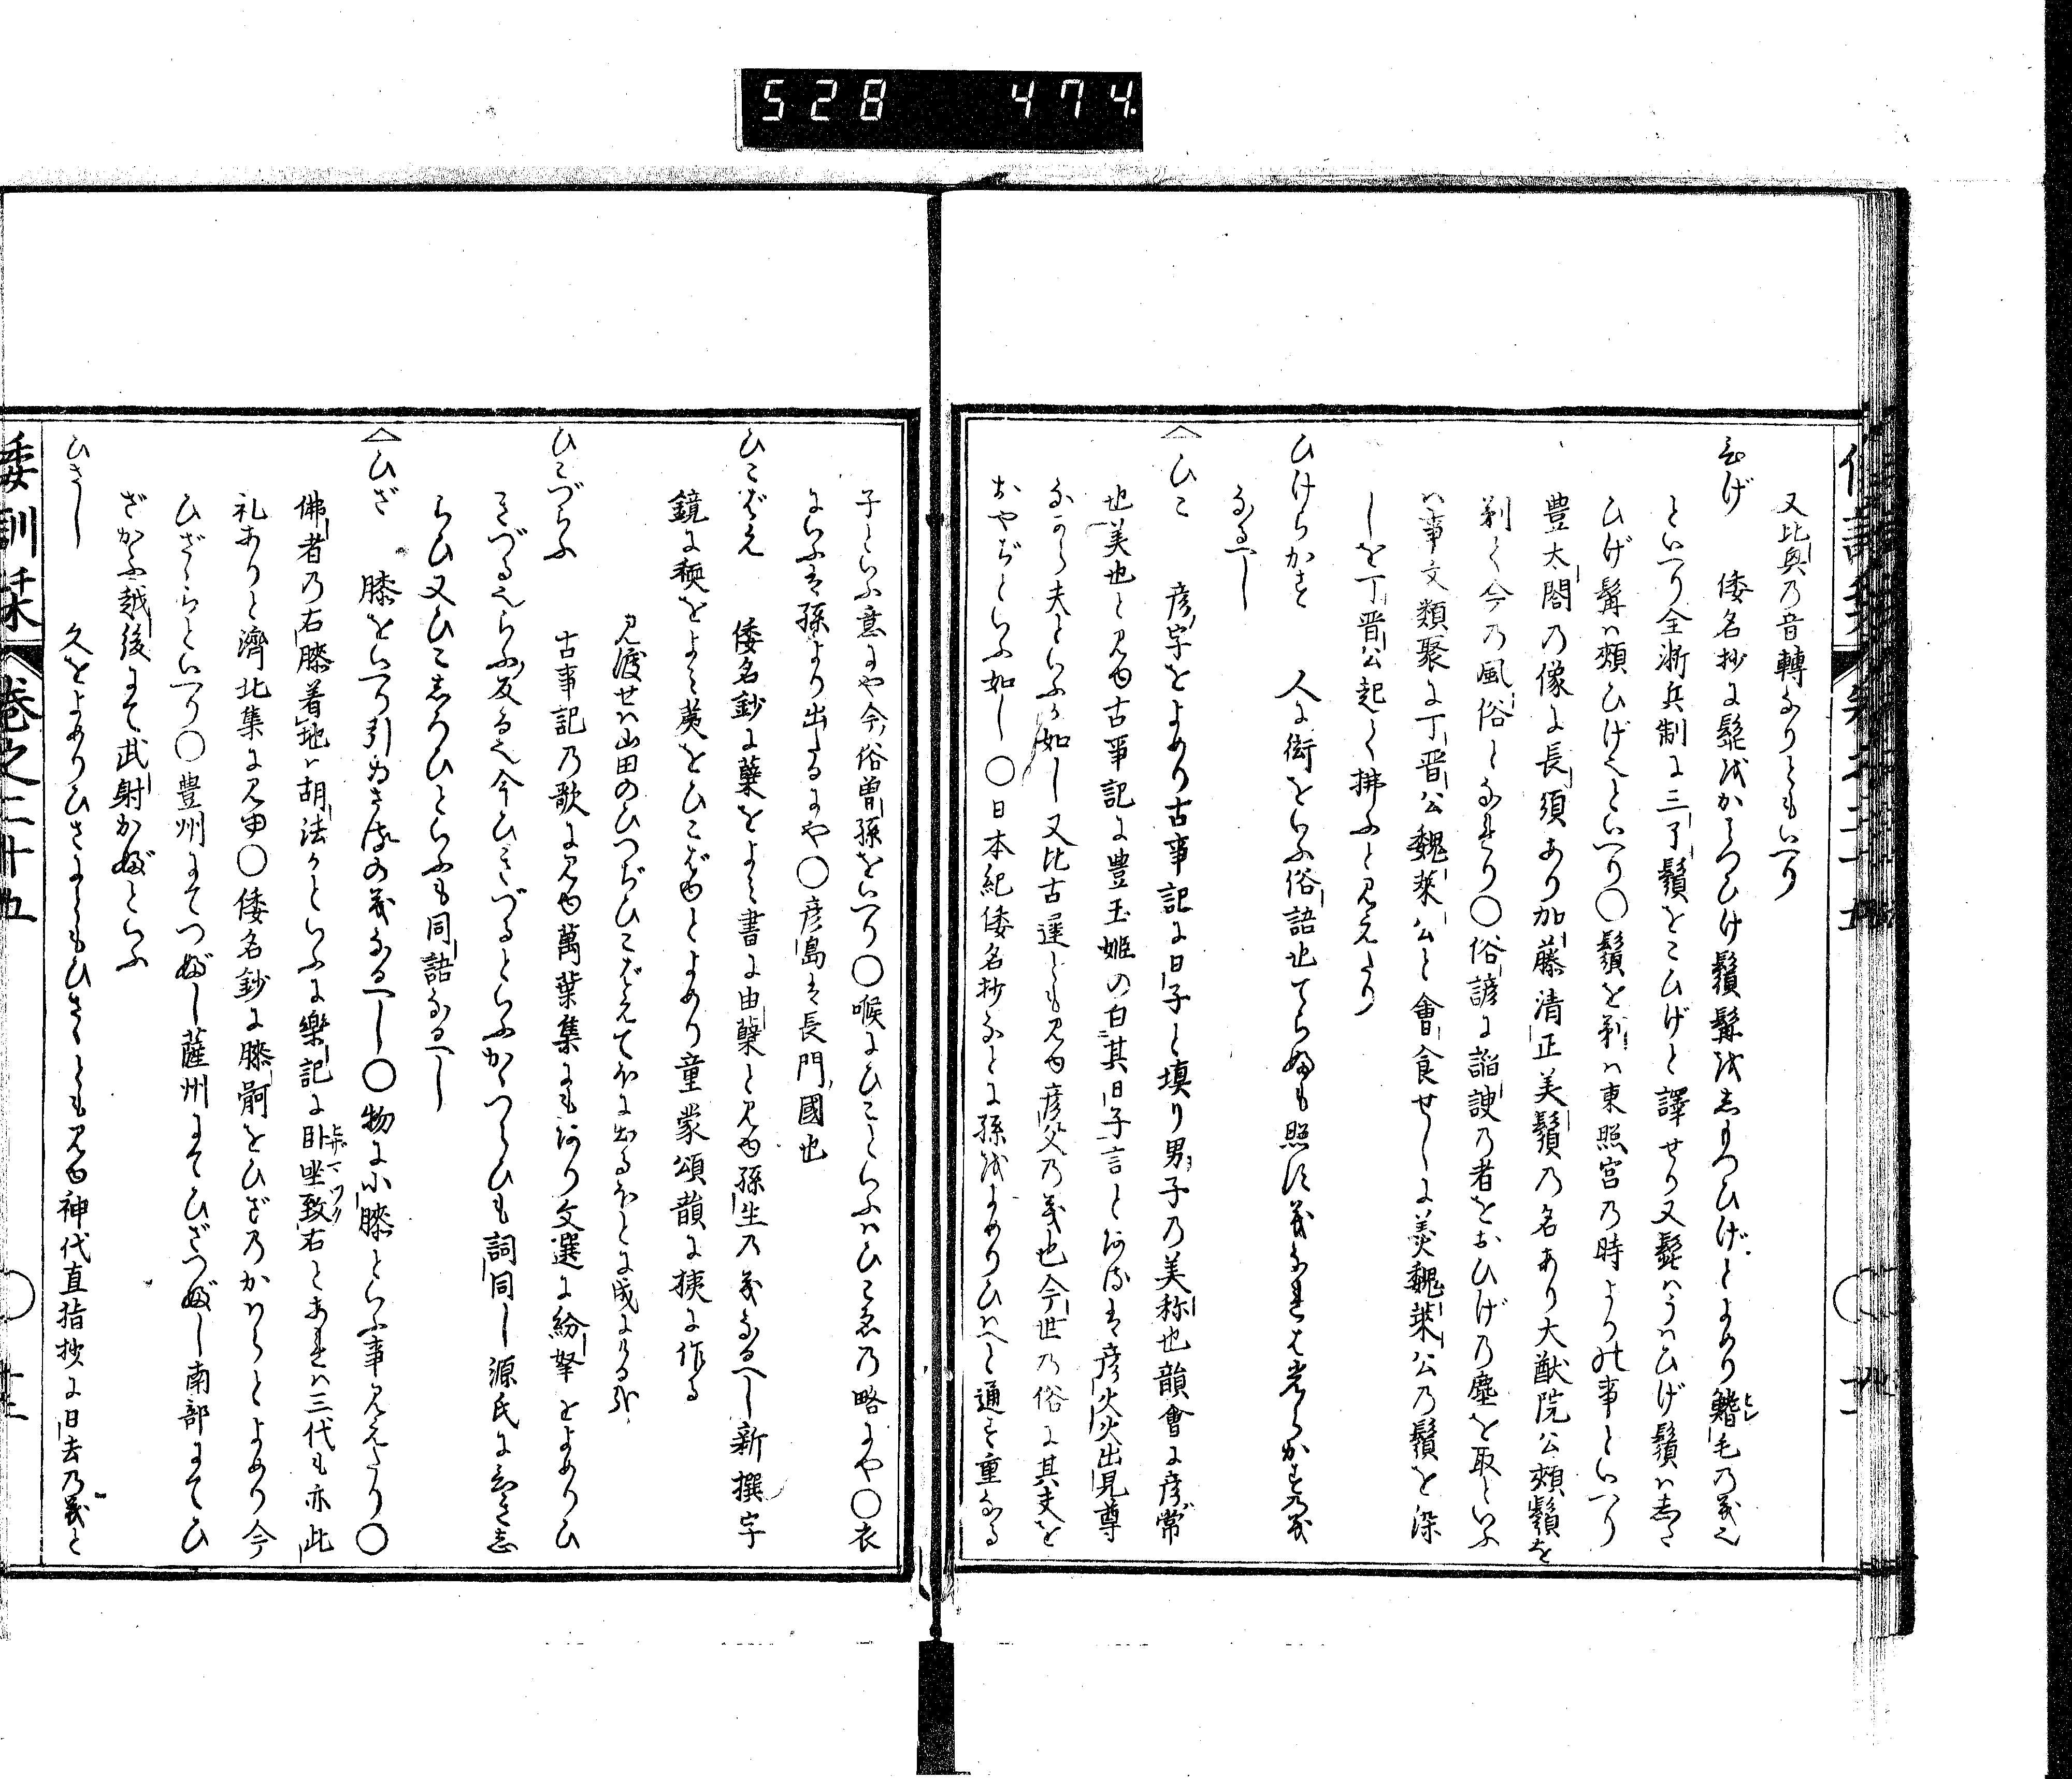 528 474.
又比奥乃音轉なりともいへり
ひげ 倭名抄に髭をかみつひけ鬚髯を志もつひげとよめり鰭毛乃義也
といへり全浙兵制に三了鬚をこひげと譯せり又髭ハうハひげ鬚ハ志た
ひげ髯ハ頬ひげ也といへり〇鬚を剃ハ東照宮乃時より此事といへり
豊太閤乃像に長須あり加藤清正美鬚乃名あり大猷院公頬鬚を
剃て今乃風俗となれり〇俗諺に諂諛乃者をおひげ乃塵を取といふ
ハ事文類聚に丁晋公魏莱公と會食せしに羮魏莱公乃鬚を染
しを丁晋公起て拂ふと見えたり
ひけらかす 人に衒をいふ俗語也てらふも照す義なれは光らかす乃義
なるへし
ひこ 彦字をよめり古事記に日子と填り男子乃美称也韻會に彦常
也美也と見ゆ古事記に豊玉姫の白其日子言とあるは彦火火出見尊
なから夫といふか如し又比古遅とも見ゆ彦父乃義也今世乃俗に其夫を
おやぢといふ如し〇日本紀倭名抄なとに孫をよめりひハへと通す重なる
子といふ意にや今俗曽孫をいへり〇喉にひこといふハひこゑ乃略にや〇衣
にいふは孫より出たるにや〇彦島は長門國也
ひこばえ 倭名鈔に蘖をよミ書に由蘖と見ゆ孫生乃義なるへし新撰字
鏡に䅎をよミ荑をひこばゆとよめり童蒙頌韻に荑に作る
見渡せハ山田のひつぢひこばえてほに出るほとに成にける哉
ひこづらふ 古事記乃歌に見ゆ萬葉集にもあり文選に紛拏をよめりひ
こづる也らふ反る也今ひこづるといふかゝつらひも詞同し源氏にひこ志
らひ又ひこ志ろひといふも同語なるへし
ひざ 膝をいへり引ゐさ満の義なるへし〇物に小膝といふ事見えたり〇
佛者乃右膝着地ハ胡法かといふに樂記に卧坐致右とあれハ三代も亦此
礼ありと濟北集に見ゆ〇倭名鈔に膝䯊をひざ乃かハらとよめり今
ひざゝらといへり〇豊州にてつぶし薩州にてひざつぶし南部にてひ
ざかふ越後にて武射かぶといふ
ひさし 久をよめりひさにともひさゝとも見ゆ神代直指抄に日去乃義と
倭訓栞 巻之二十五